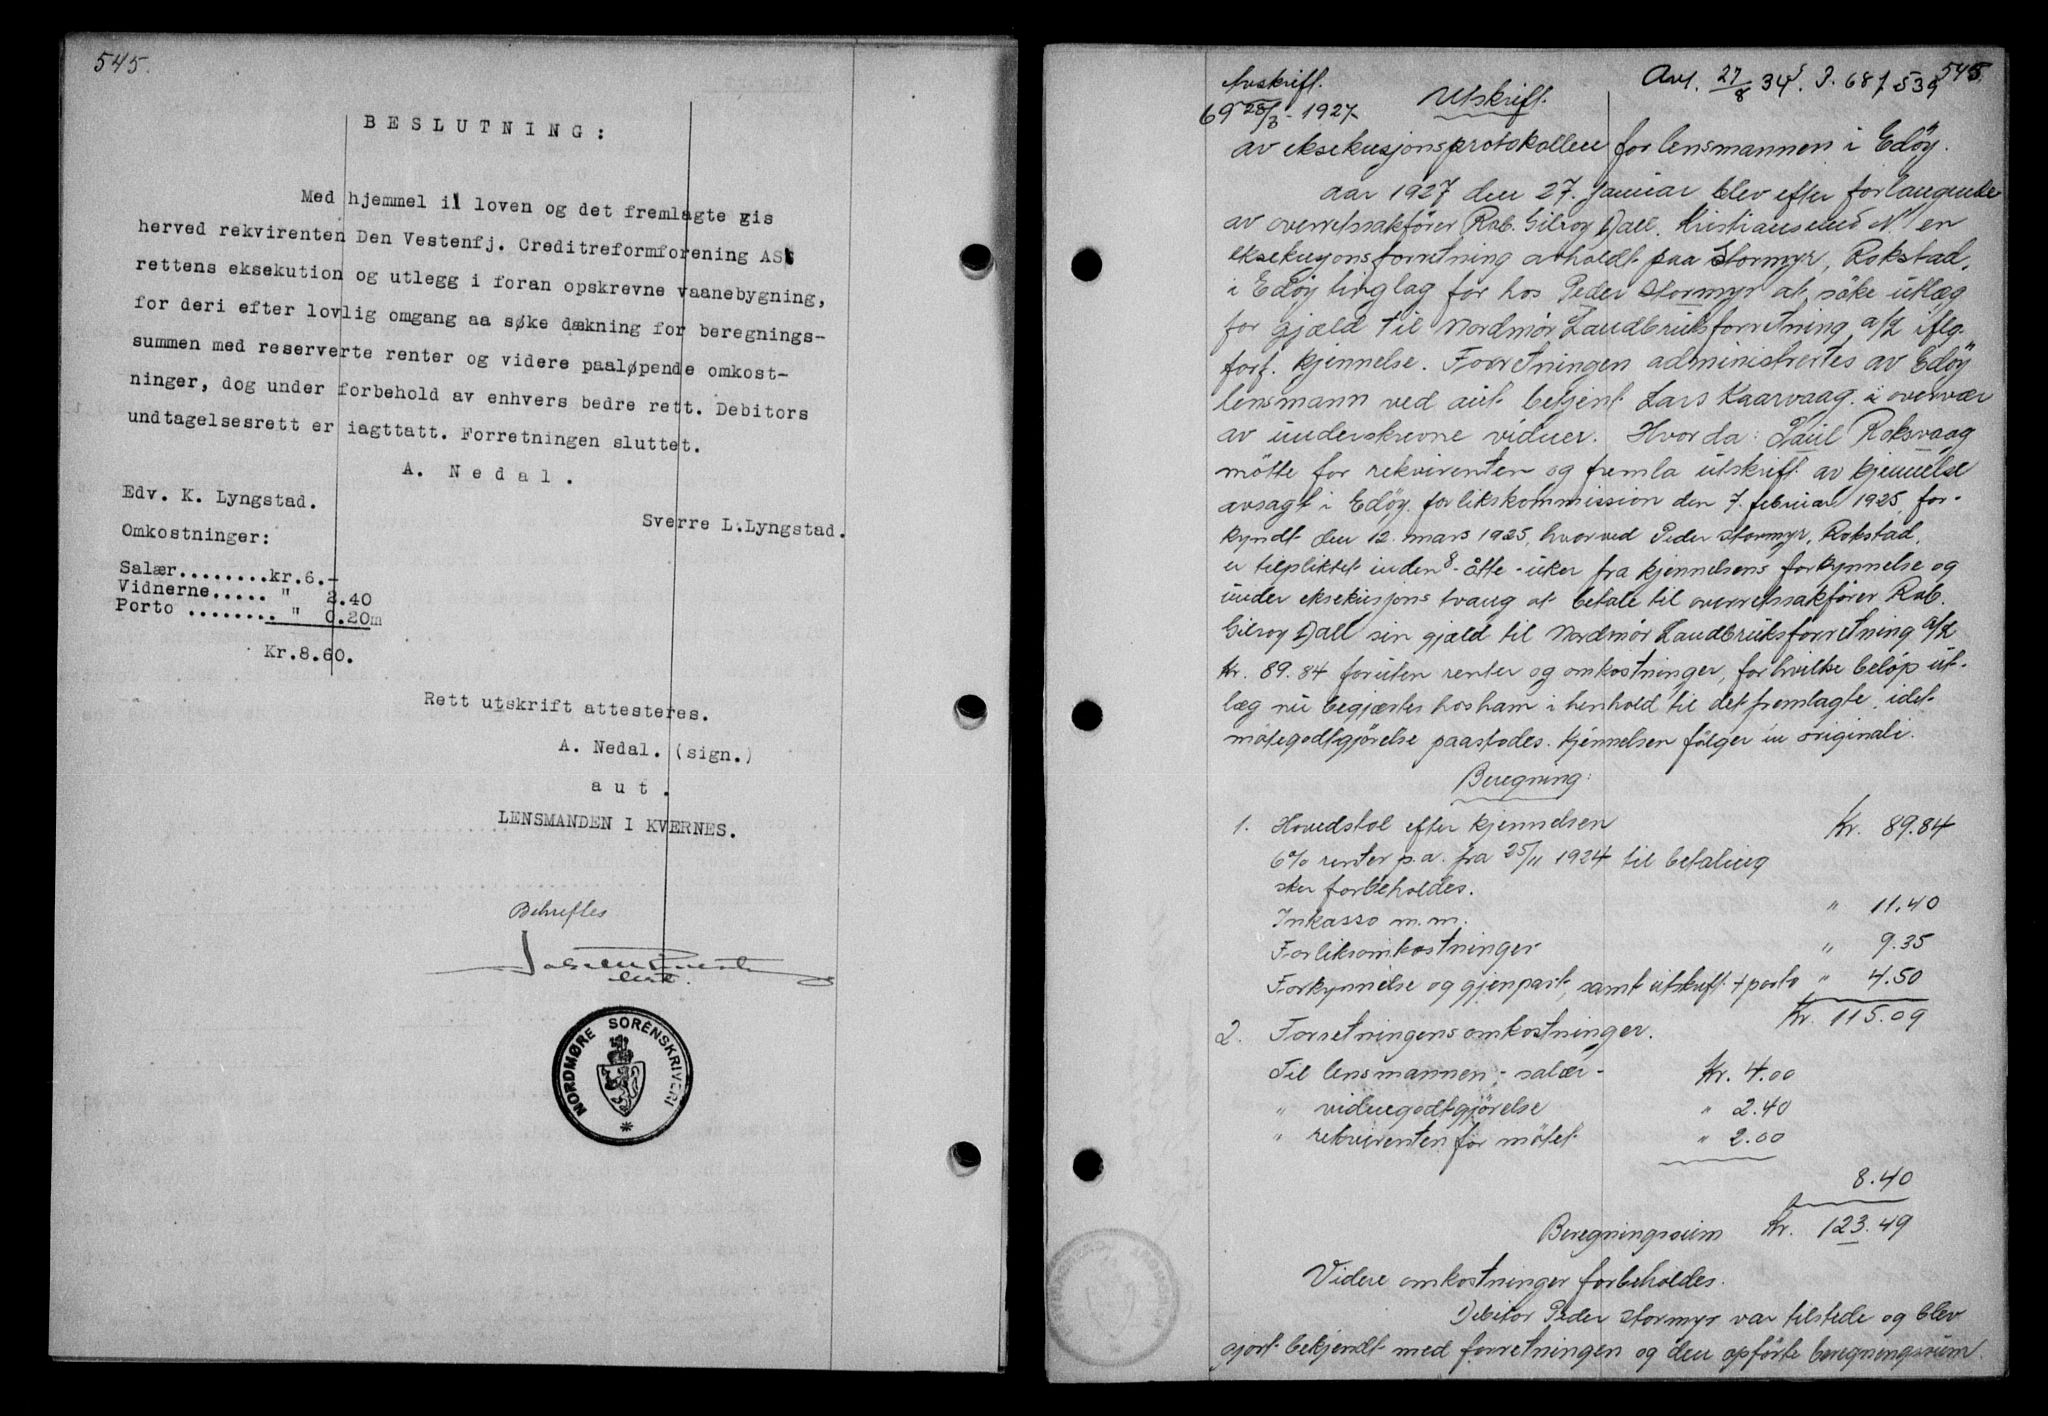 545.
BESLUTNING:
Med hjemmel i loven og det fremlagte gis
herved rekvirenten Den Vestenfj. Creditreformforening AS
rettens eksekution og utlegg i foran opskrevne vaanebygning,
for deri efter lovlig omgang aa søke dækning for beregnings-
summen med reserverte renter og videre paaløpende omkost-
ninger, dog under forbehold av enhvers bedre rett. Debitors
undtagelsesrett er iagttatt. Forretningen sluttet.
A. Nedal.
Edv. K. Lyngstad.
Sverre L.Lyngstad.
Omkostninger:
Salær........kr.6.-
Vidnerne..... " 2.40
Porto ........ " 0.20
Kr.8.60.
Rett utskrift attesteres.
A. Nedal. (sign.)
aut.
LENSMANDEN I KVERNES.
Bekreftes
NORDMØRE SORENSKRIVERI
Avskrift.
69 28/3 - 1927
Avl. 27/8 34. J. 681 539
545.
Utskrift.
av eksekusjonsprotokollen for lensmannen i Edöy.
aar 1927 den 27. januar blev efter forlangende
av overretssakförer Rob. Gilroy Dall, Kristiansund N. en
eksekusjonsforretning avholdt paa Stormyr, Rokstad,
i Edöy tinglag for hos Peder Stormyr at söke utlæg
for gjæld til Nordmör Landbruksforretning a/L iflg.
forl. kjennelse. Forretningen administrertes av Edöy
lensmann ved aut. betjent Lars Kaarvaag i overvær
av underskrevne vidner. Hvorda: Paul Roksvaag
mötte for rekvirenten og fremla utskrift av kjennelse
avsagt i Edöy forlikskommission den 7. februar 1925, for-
kyndt den 12. mars 1925, hvorved Peder Stormyr, Rokstad,
er tilpliktet inden 8 - åtte - uker fra kjennelsens forkynnelse og
under eksekusjons tvang at betale til overretssakförer Rob.
Gilroy Dall sin gjæld til Nordmör Landbruksforretning a/L
kr. 89.84 foruten renter og omkostninger, for hvilke belöp ut-
læg nu begjærtes hos ham i henhold til det fremlagte, idet
mötegodtgjörelse paastodes. Kjennelsen fölger in originali.
Beregning:
1. Hovedstol efter kjennelsen Kr. 89.84
6% renter p.a. fra 25/11 1924 til betaling
sker forbeholdes.
Inkasso m.m. " 11.40
Forliksomkostninger " 9.35
Forkynnelse og gjenpart, samt utskrift + porto " 4.50
Kr. 115.09
2. Forretningens omkostninger.
Til lensmannen - salær - Kr. 4.00
" vidnegodtgjörelse " 2.40
" rekvirenten for mötet " 2.00
8.40
Beregningssum Kr. 123.49
Videre omkostninger forbeholdes.
Debitor Peder Stormyr var tilstede og blev
gjort bekjendt med forretningen og den opförte beregningssum.